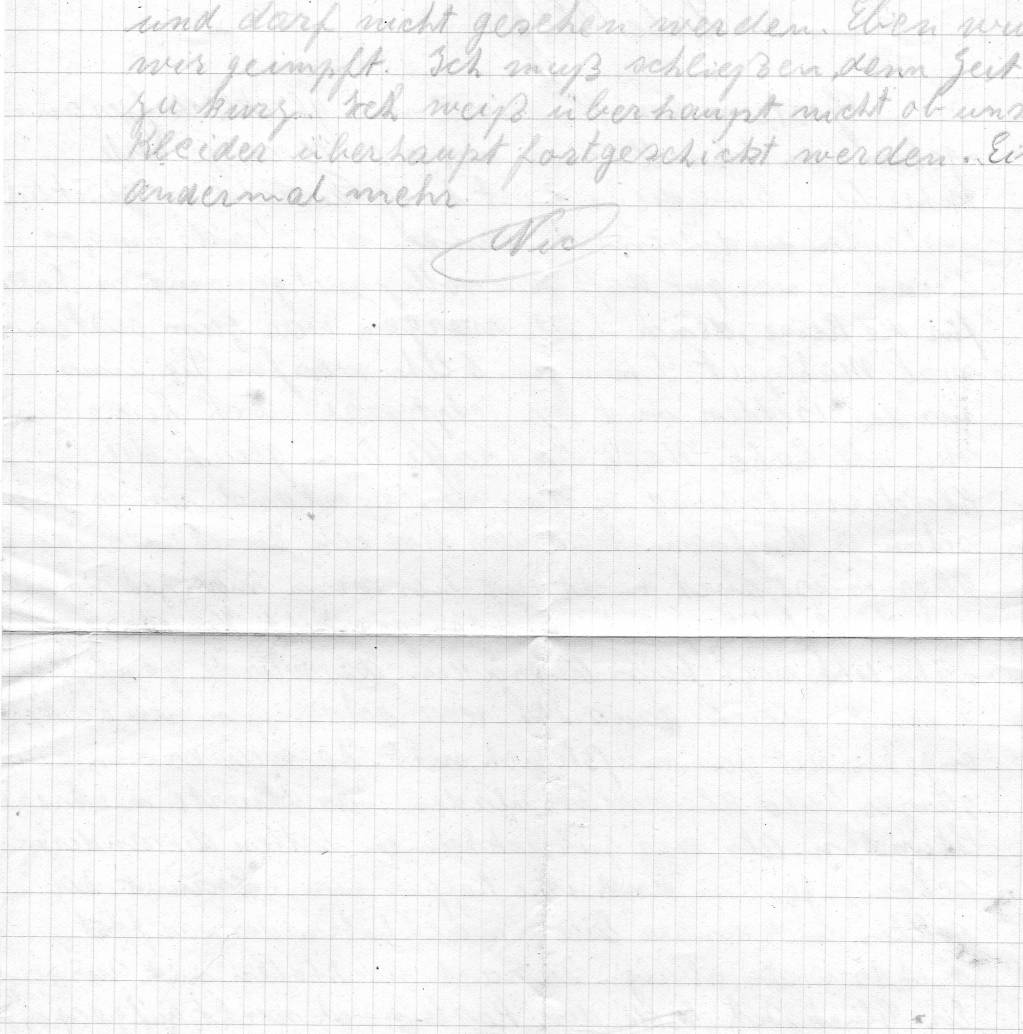 und darf nicht gesehen werden. Eben wu
wir geimpft. Ich muß schließen, denn Zeit
zu kurz. Ich weiß überhaupt nicht ob uns
Kleider überhaupt fortgeschickt werden. Ei
andermal mehr
Nic